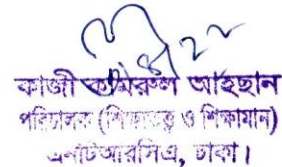 কাজী কামরুল আহছান
পরিচালক (শিক্ষাতত্ত্ব ও শিক্ষামান)
এনটিআরসিএ, ঢাকা।